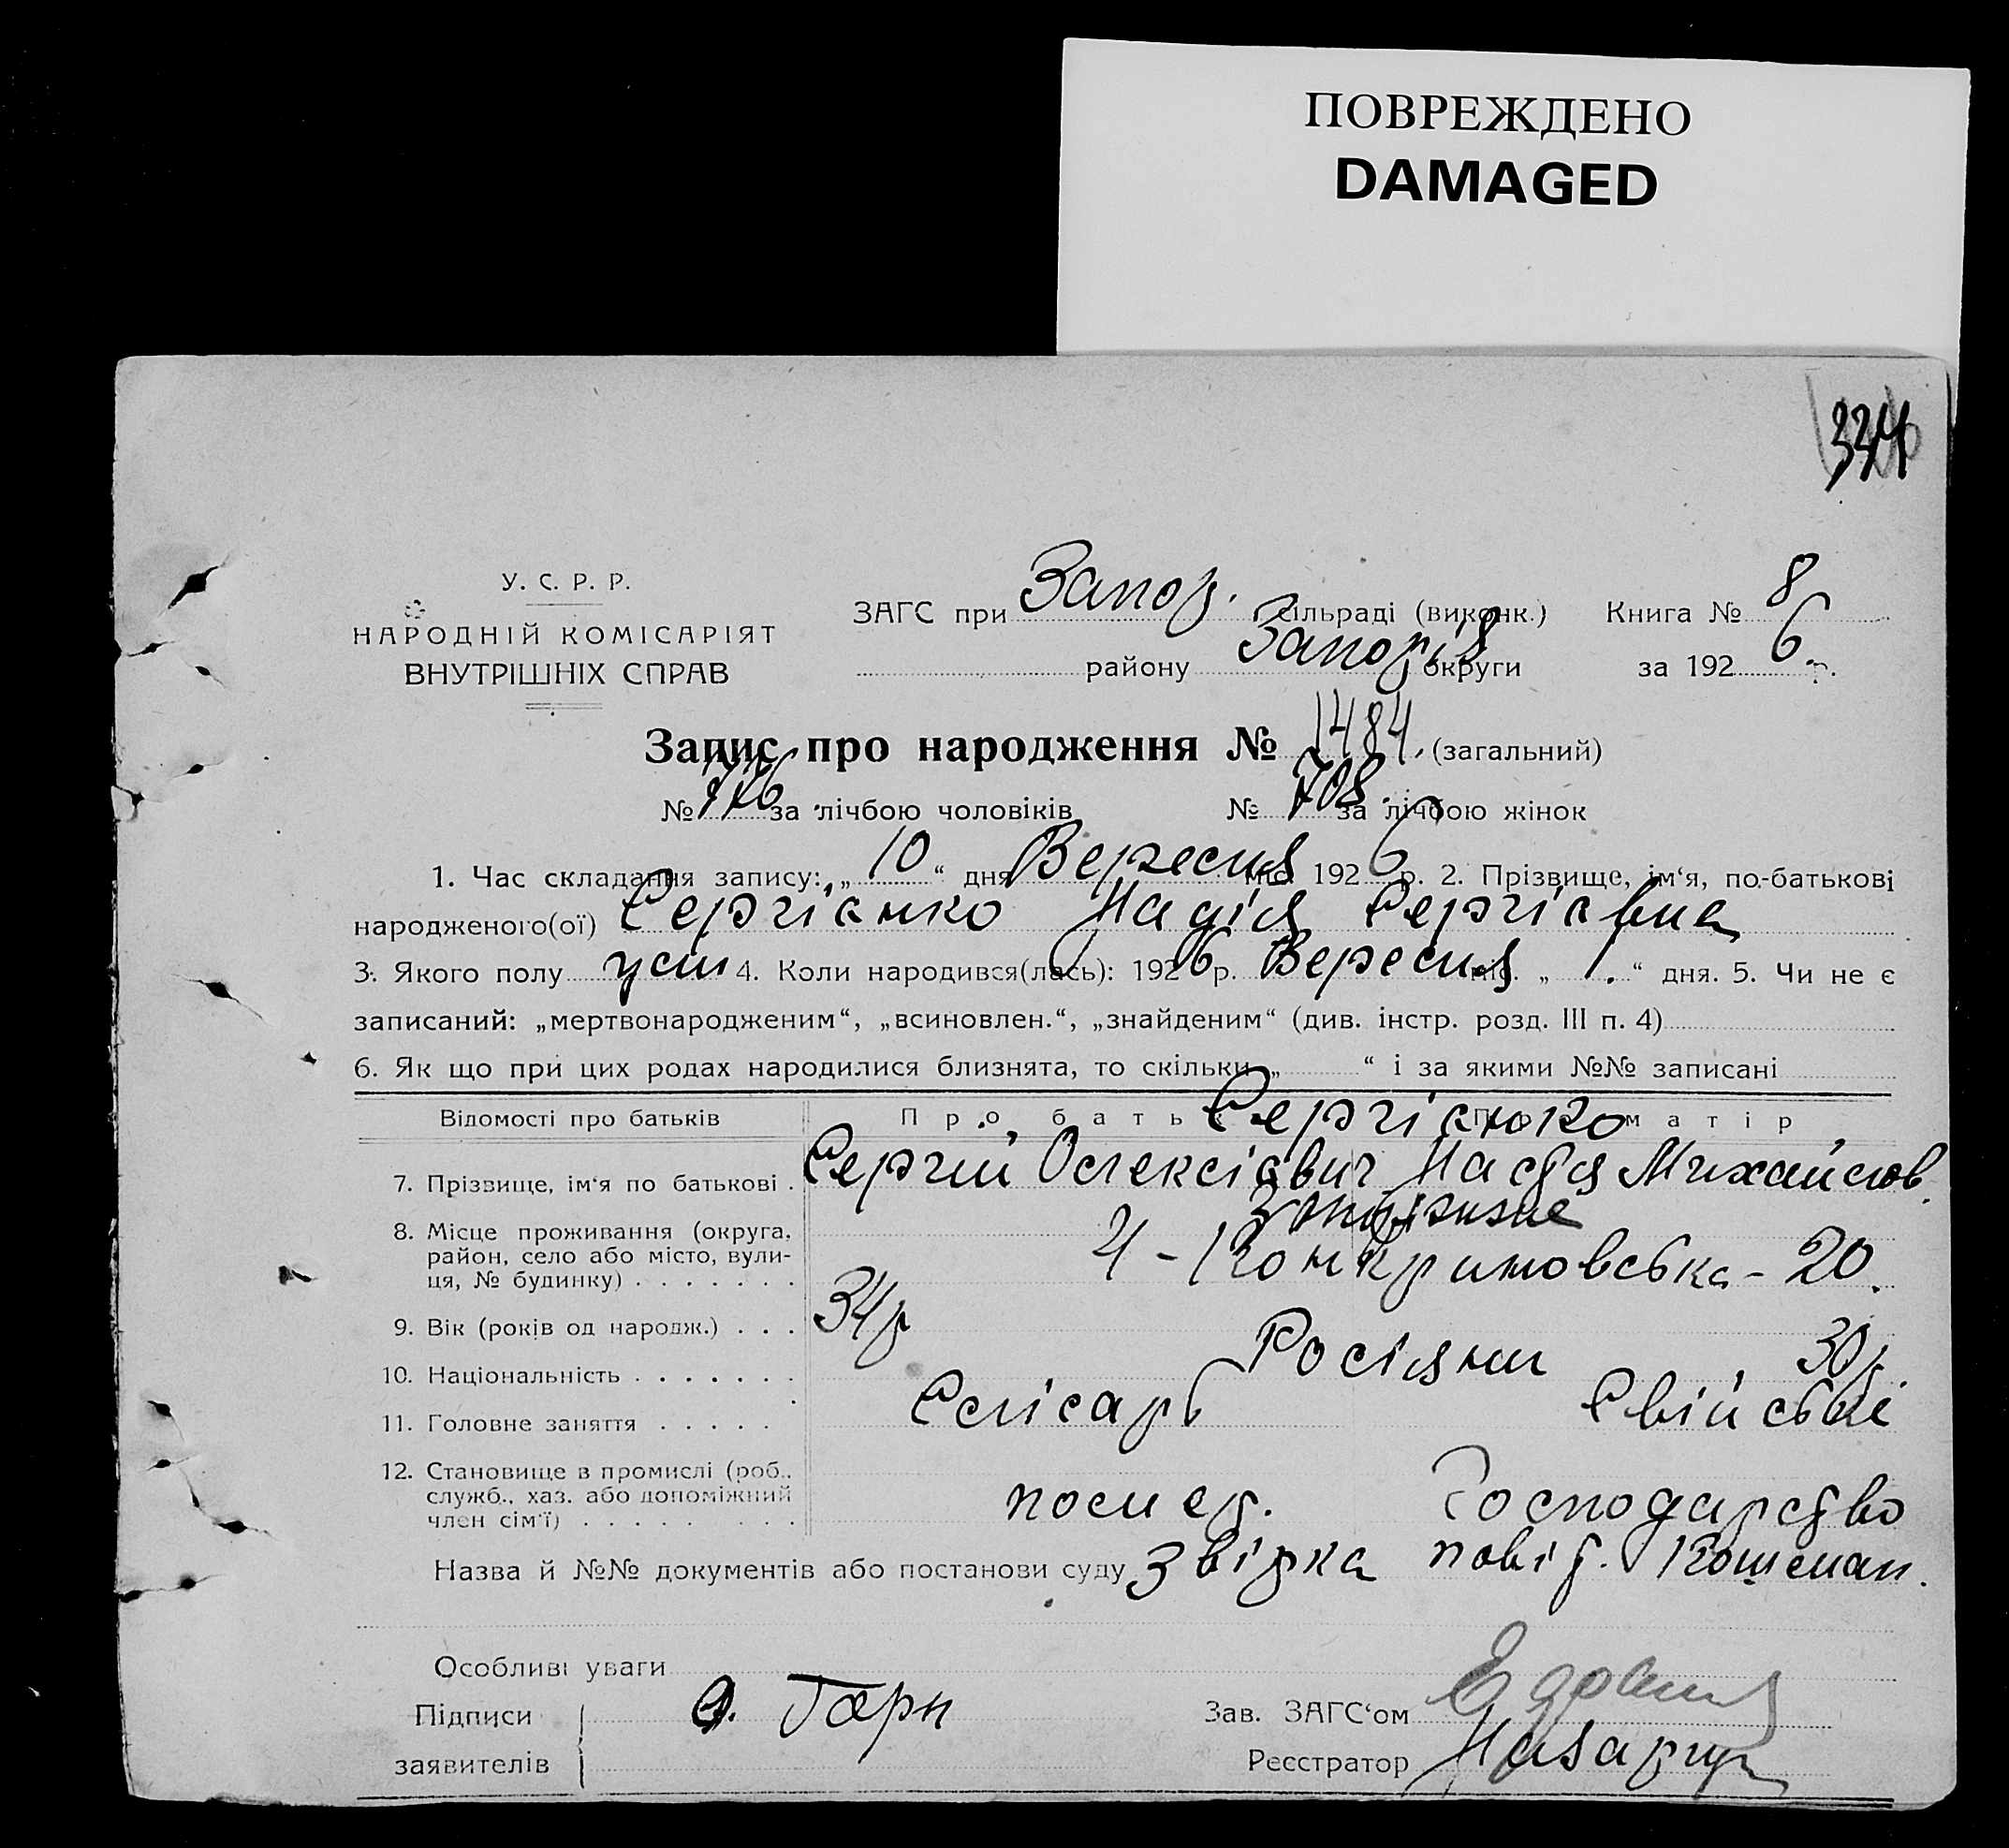 ПОВРЕЖДЕНО
DAMAGED
334
У. С. Р. Р.
НАРОДНІЙ КОМІСАРІЯТ
ВНУТРІШНІХ СПРАВ
ЗАГС при Запор. сільраді (виконк.) Книга № 8
району Запоріз округи за 1926 р.
Запис про народження № 1484. (загальний)
№ 776 за лічбою чоловіків № 708. за лічбою жінок
1. Час складання запису: „10“ дня Вересня міс. 1926 р. 2. Прізвище, ім‘я, по-батькові
народженого(ої) Сергієнко Надія Сергієвна
3. Якого полу 4. Коли народився(лась): 1926 р. Вересня міс. „1.“ дня. 5. Чи не є
записаний: „мертвонародженим“, „всиновлен.“, „знайденим“ (див. інстр. розд. III п. 4)
6. Як що при цих родах народилися близнята, то скільки „ “ і за якими №№ записані
Відомості про батьків Про бать Сергієнко матір
7. Прізвище, ім‘я по батькові . Сергій Олексієвич Настя Михайлов.
8. Місце проживання (округа, Запоріжжє
район, село або місто, вули- 4 - - 20.
ця, № будинку) . . . . . . .
9. Вік (років од народж.) . . . 34р 30р.
10. Національність . . . . . . . Росіяни
11. Головне заняття . . . . . Слісарь Свійське
12. Становище в промислі (роб.,
служб., хаз. або допоміжний Господарство
член сім‘ї) . . . . . . . . .
Назва й №№ документів або постанови суду Звірка повід.
Особливі уваги
Підписи О. Гарн Зав. ЗАГС‘ом
заявителів Реєстратор